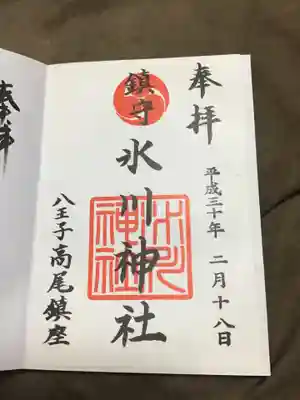 奉拝
平成三十年 二月十八日
鎮守 氷川神社
氷川神社
八王子高尾鎮座